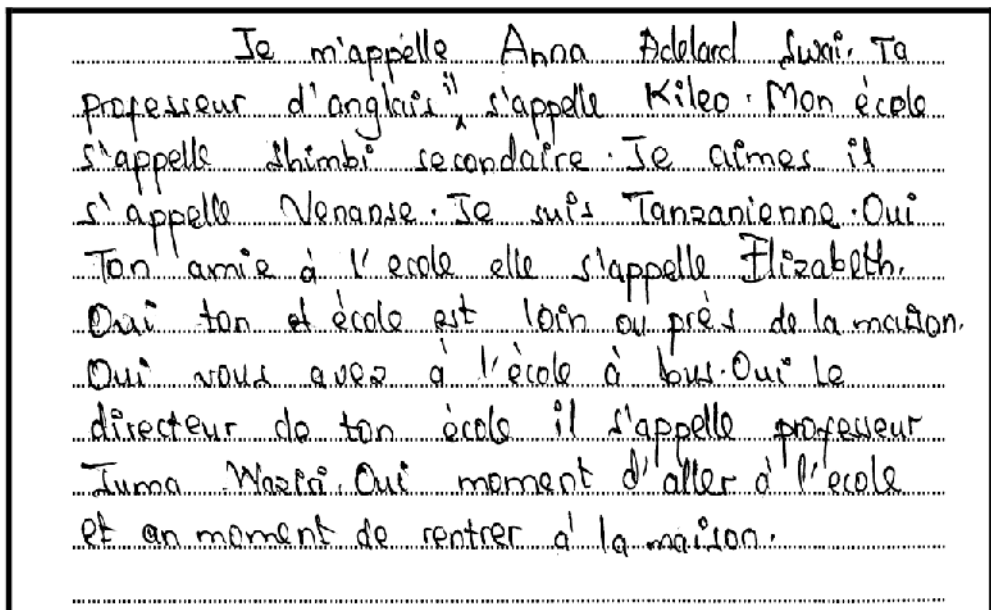 Je m'appelle Anna Adelard Swai. Ta
professeur d'anglais il s'appelle Kileo. Mon école
s'appelle Shimbi secondaire. Je aimes il
s'appelle Venanse. Je suis Tanzanienne. Oui
Ton amie à l'ecole elle s'appelle Elizabeth.
Oui ton et école est loin ou près de la maison.
Oui vous avez à l'école à bus. Oui Le
directeur de ton école il s'appelle professeur
Juma Waziri. Oui moment d'aller à l'ecole
et an moment de rentrer à la maison.